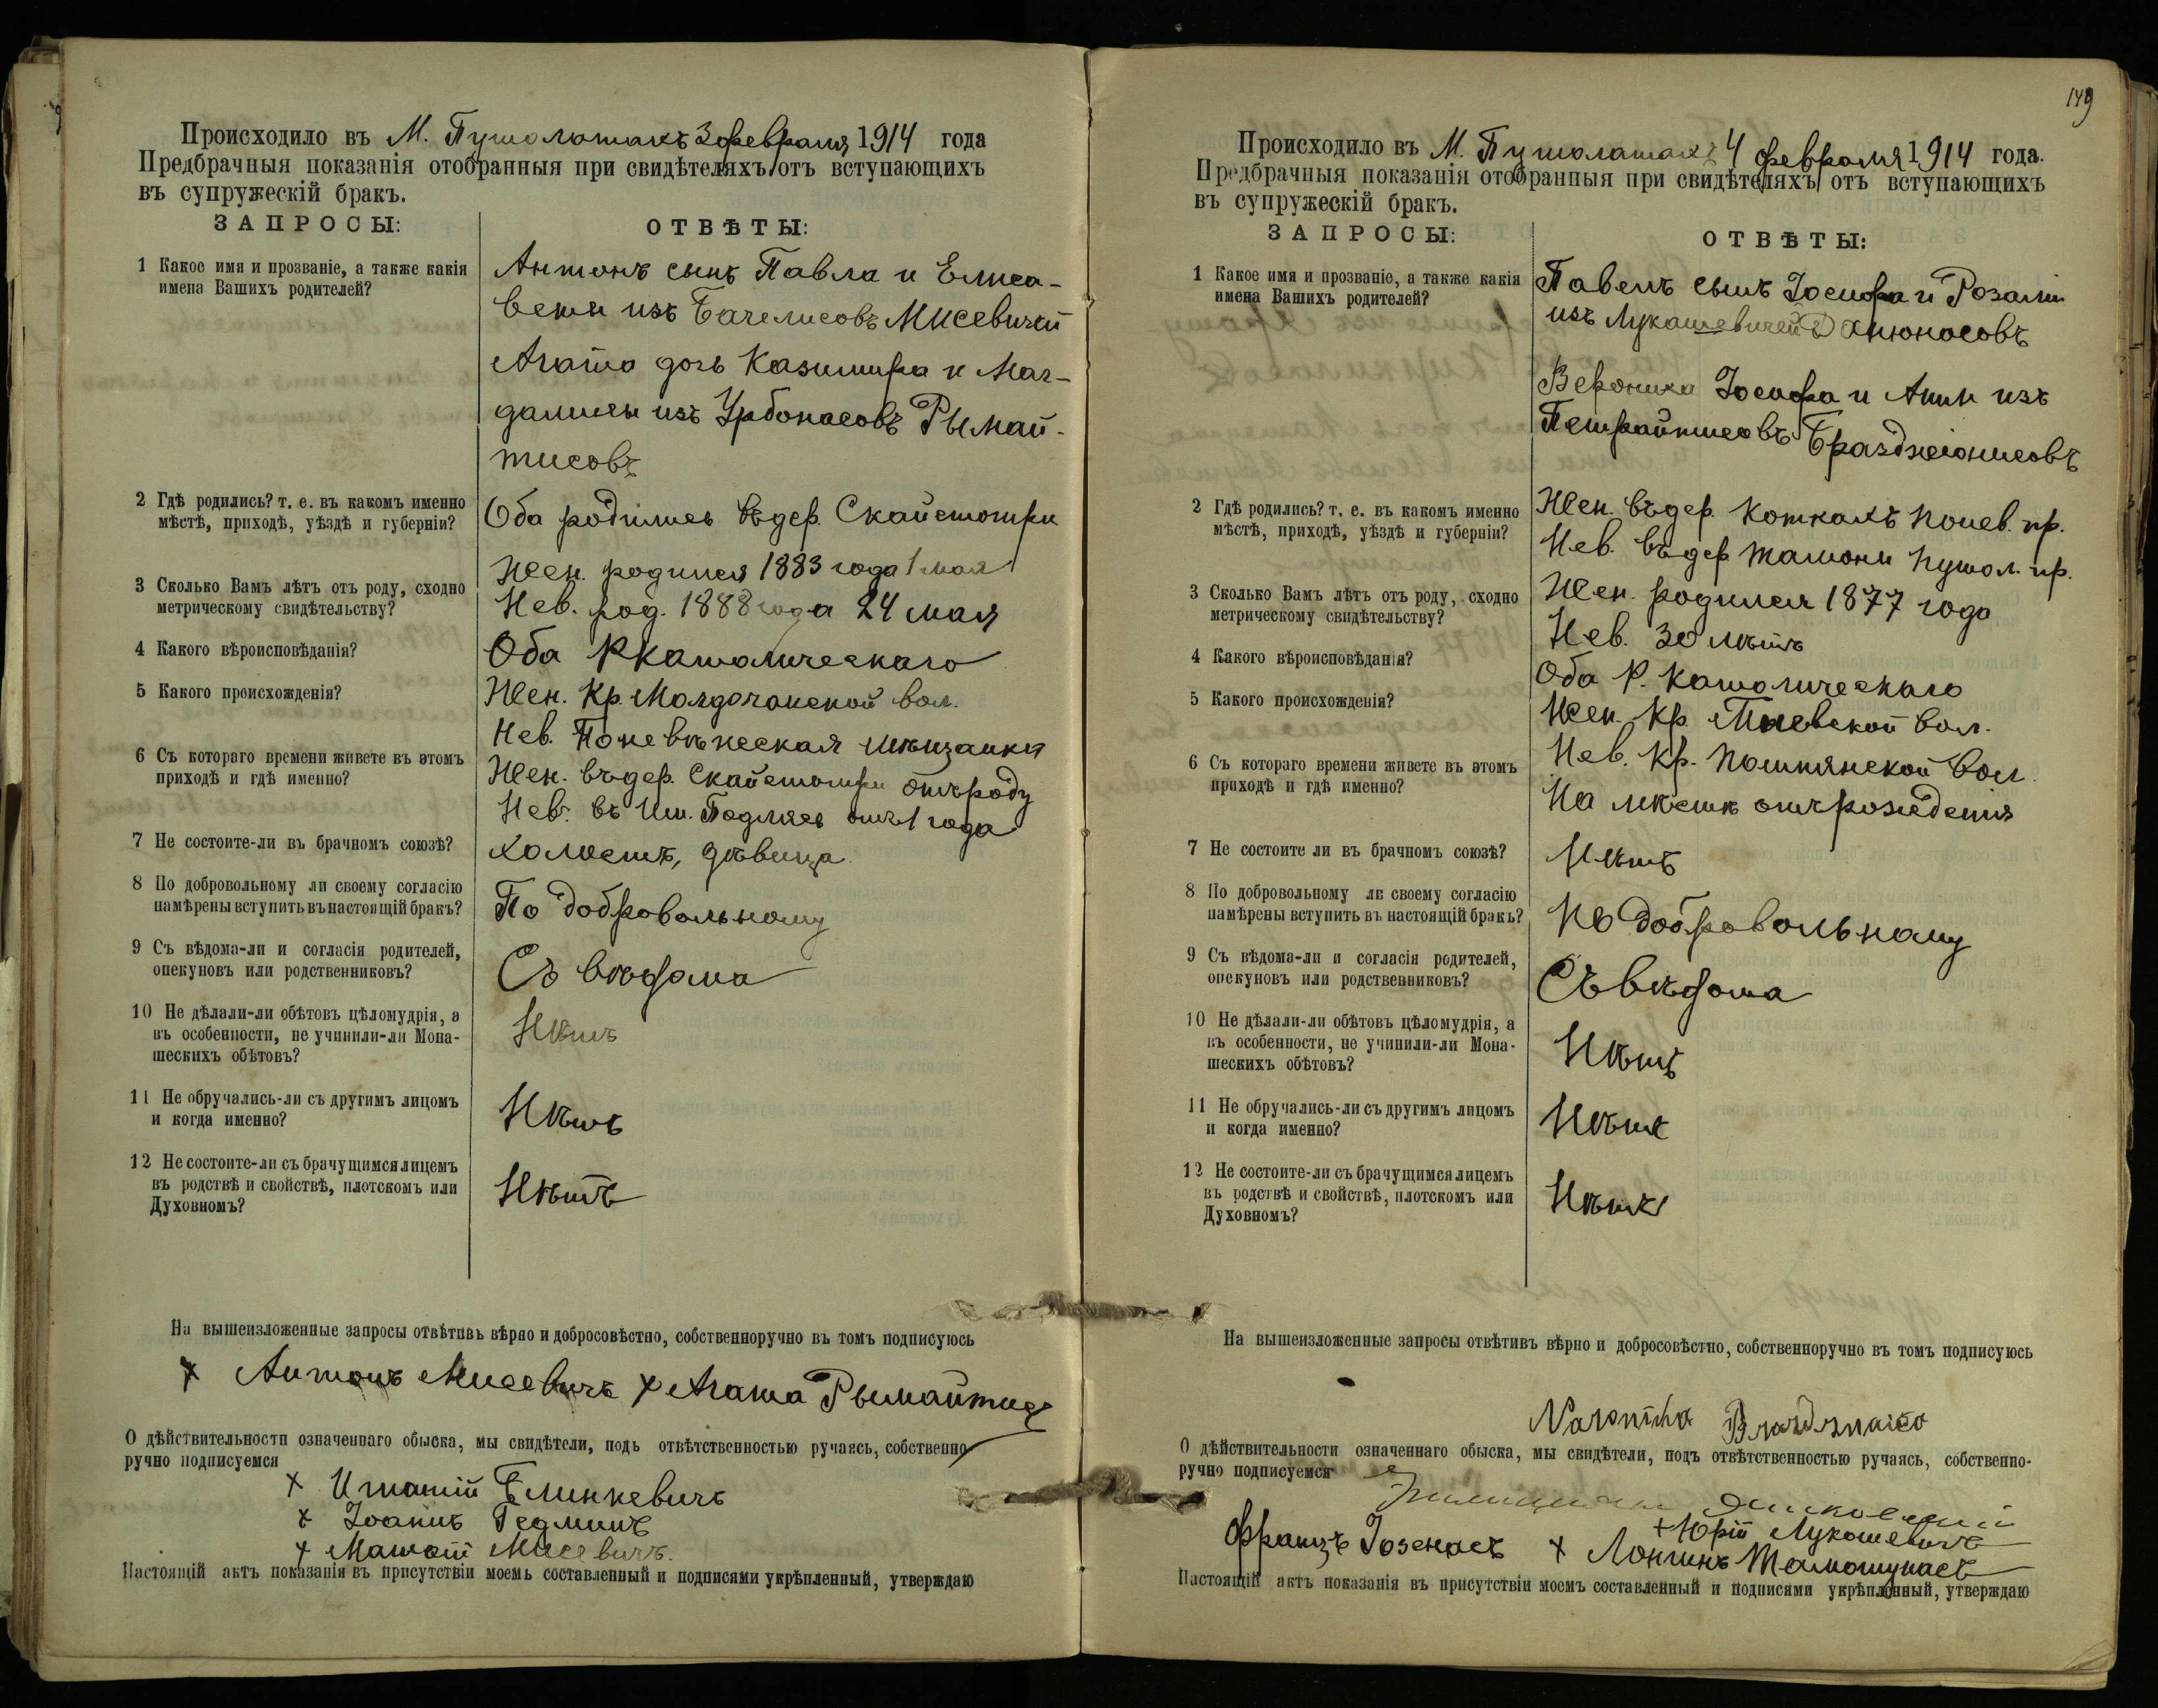 Происходило въ М. Пушолотахъ 3 февраля 1914 года
Предбрачныя показанія отобранныя при свидѣтеляхъ отъ вступающихъ
въ супружескій бракъ.
ЗАПРОСЫ:
ОТВѢТЫ:
1 Какое имя и прозваніе, а также какія
имена Вашихъ родителей?
Антонъ сынъ Павла и Елиса-
веты изъ Бачелисовъ Мисевичей
Агата дочь Казимира и Маг-
далины изъ Урбонасовъ Рымай-
тисовъ
2 Гдѣ родились? т. е. въ какомъ именно
мѣстѣ, приходѣ, уѣздѣ и губерніи?
Оба родились въ дер. Скайстотри
3 Сколько Вамъ лѣтъ отъ роду, сходно
метрическому свидѣтельству?
Жен. родился 1883 года 1 мая
Нев. род. 1888 года 24 мая
4 Какого вѣроисповѣданія?
Оба Р католическаго
5 Какого происхожденія?
Жен. Кр. вол.
Нев. Поневѣжеская мѣщанка
6 Съ котораго времени живете въ этомъ
приходѣ и гдѣ именно?
Жен. въ дер. Скайстотри отъ роду
Нев. въ Им. отъ 1 года
7 Не состоите-ли въ брачномъ союзѣ?
Холостъ, дѣвица
8 По добровольному ли своему согласію
намѣрены вступить въ настоящій бракъ?
По добровольному
9 Съ вѣдома-ли и согласія родителей,
опекуновъ или родственниковъ?
Съ вѣдома
10 Не дѣлали-ли обѣтовъ цѣломудрія, а
въ особенности, не учинили-ли Мона-
шескихъ обѣтовъ?
Нѣтъ
11 Не обручались-ли съ другимъ лицомъ
и когда именно?
Нѣтъ
12 Не состоите-ли съ брачущимся лицемъ
въ родствѣ и свойствѣ, плотскомъ или
Духовномъ?
Нѣтъ
На вышеизложенные запросы отвѣтивъ вѣрно и добросовѣстно, собственноручно въ томъ подписуюсь
х Антонъ Мисевичъ х Агата Рымайтисъ
О дѣйствительности означеннаго обыска, мы свидѣтели, подъ отвѣтственностью ручаясь, собственно
ручно подписуемся
х Игнатій Блинкевичъ
х Іоаннъ Гедминъ
х Матвѣй Мисевичъ.
Настоящій актъ показанія въ присутствіи моемъ составленный и подписями укрѣпленный, утверждаю
149
Происходило въ М. Пушолатахъ 4 февраля 1914 года.
Предбрачныя показанія отобранныя при свидѣтеляхъ отъ вступающихъ
въ супружескій бракъ.
ЗАПРОСЫ:
ОТВѢТЫ:
1 Какое имя и прозваніе, а также какія
имена Вашихъ родителей?
Павелъ сынъ Іосифа и Розаліи
изъ Лукашевичей
Вероника Іосифа и Анны изъ
Петрайтисовъ Бразджіонисовъ
2 Гдѣ родились? т. е. въ какомъ именно
мѣстѣ, приходѣ, уѣздѣ и губерніи?
Жен. въ дер. Коткахъ Понев. пр.
Нев. въ дер. Тамони Пушол. пр.
3 Сколько Вамъ лѣтъ отъ роду, сходно
метрическому свидѣтельству?
Жен. родился 1877 года
Нев. 30 лѣтъ
4 Какого вѣроисповѣданія?
Оба Р. католическаго
5 Какого происхожденія?
Жен. Кр. вол.
Нев. Кр. Помпянской вол
6 Съ котораго времени живете въ этомъ
приходѣ и гдѣ именно?
На мѣстѣ отъ рожденія
7 Не состоите ли въ брачномъ союзѣ?
Нѣтъ
8 По добровольному ли своему согласію
намѣрены вступить въ настоящій бракъ?
По добровольному
9 Съ вѣдома-ли и согласія родителей,
опекуновъ или родственниковъ?
Съ вѣдома
10 Не дѣлали-ли обѣтовъ цѣломудрія, а
въ особенности, не учинили-ли Мона-
шескихъ обѣтовъ?
Нѣтъ
11 Не обручались-ли съ другимъ лицомъ
и когда именно?
Нѣтъ
12 Не состоите-ли съ брачущимся лицемъ
въ родствѣ и свойствѣ, плотскомъ или
Духовномъ?
Нѣтъ
На вышеизложенные запросы отвѣтивъ вѣрно и добросовѣстно, собственноручно въ томъ подписуюсь
О дѣйствительности означеннаго обыска, мы свидѣтели, подъ отвѣтственностью ручаясь, собственно-
ручно подписуемся
+ Юрій Лукошевичъ
Францъ Іозенасъ х Лонгинъ Тамошунасъ
Настоящій актъ показанія въ присутствіи моемъ составленный и подписями укрѣпленный, утверждаю